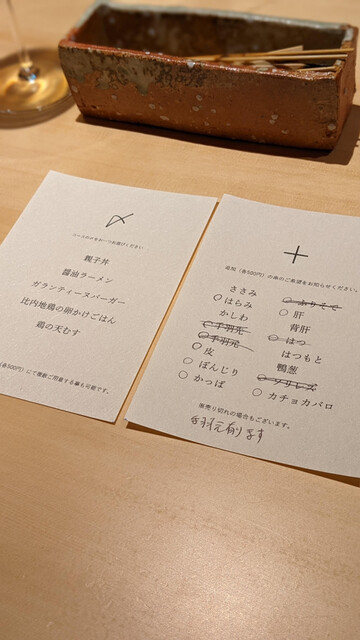 〆
コースの〆を お一つお選びください
親子丼
醤油ラーメン
ガランティーヌバーガー
比内地鶏の卵かけごはん
鶏の天むす
(各500円)にて複数ご用意する事も可能です。
＋
追加(各500円)の串のご希望をお知らせください。
ささみ
○はらみ
かしわ
○手羽先
○手羽元
○皮
○ぼんじり
○かっぱ
○肝
背肝
○はつ
はつもと
鴨葱
○カチョカバロ
※売り切れの場合もございます。
手羽元有ります